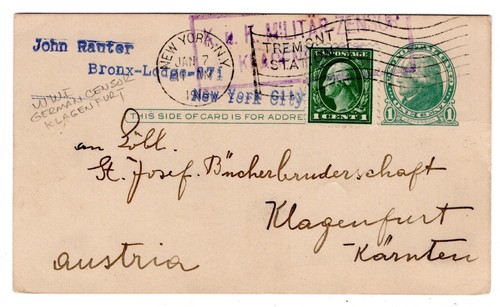 John Rauter
Bronx-Lodge
New York City
NEW YORK, N.Y.
JAN 7
TREMONT
STA
MILITÄRZEN
WWI
GERMAN CENSOR
KLAGENFURT
U.S. POSTAGE
1 CENT 1
THIS SIDE OF CARD IS FOR ADDRE
1 1
an Löbl.
St. Josef Bücherbruderschaft
Klagenfurt
Kärnten
Austria